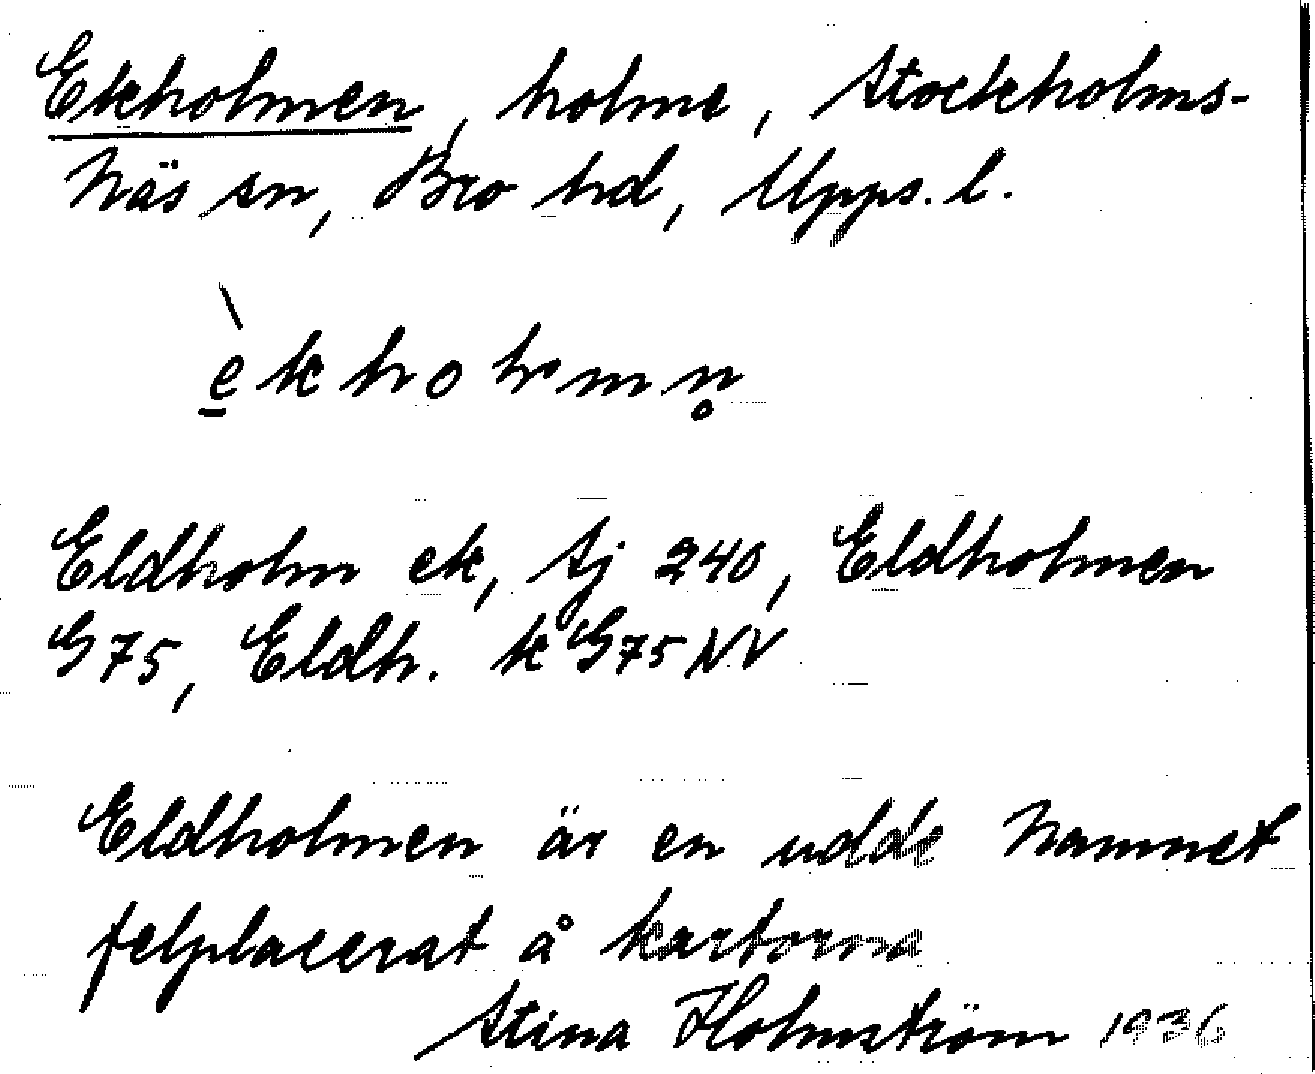 Ekholmen, holme, Stockholms-
Näs sn, Bro hd, Upps. l.
è̱kholmn̥
Eldholm ek, Sj 240, Eldholmen
G75, Eldh. k G75 NV
Eldholmen är en udde Namnet
felplacerat å kartorna
Stina Holmström 1936